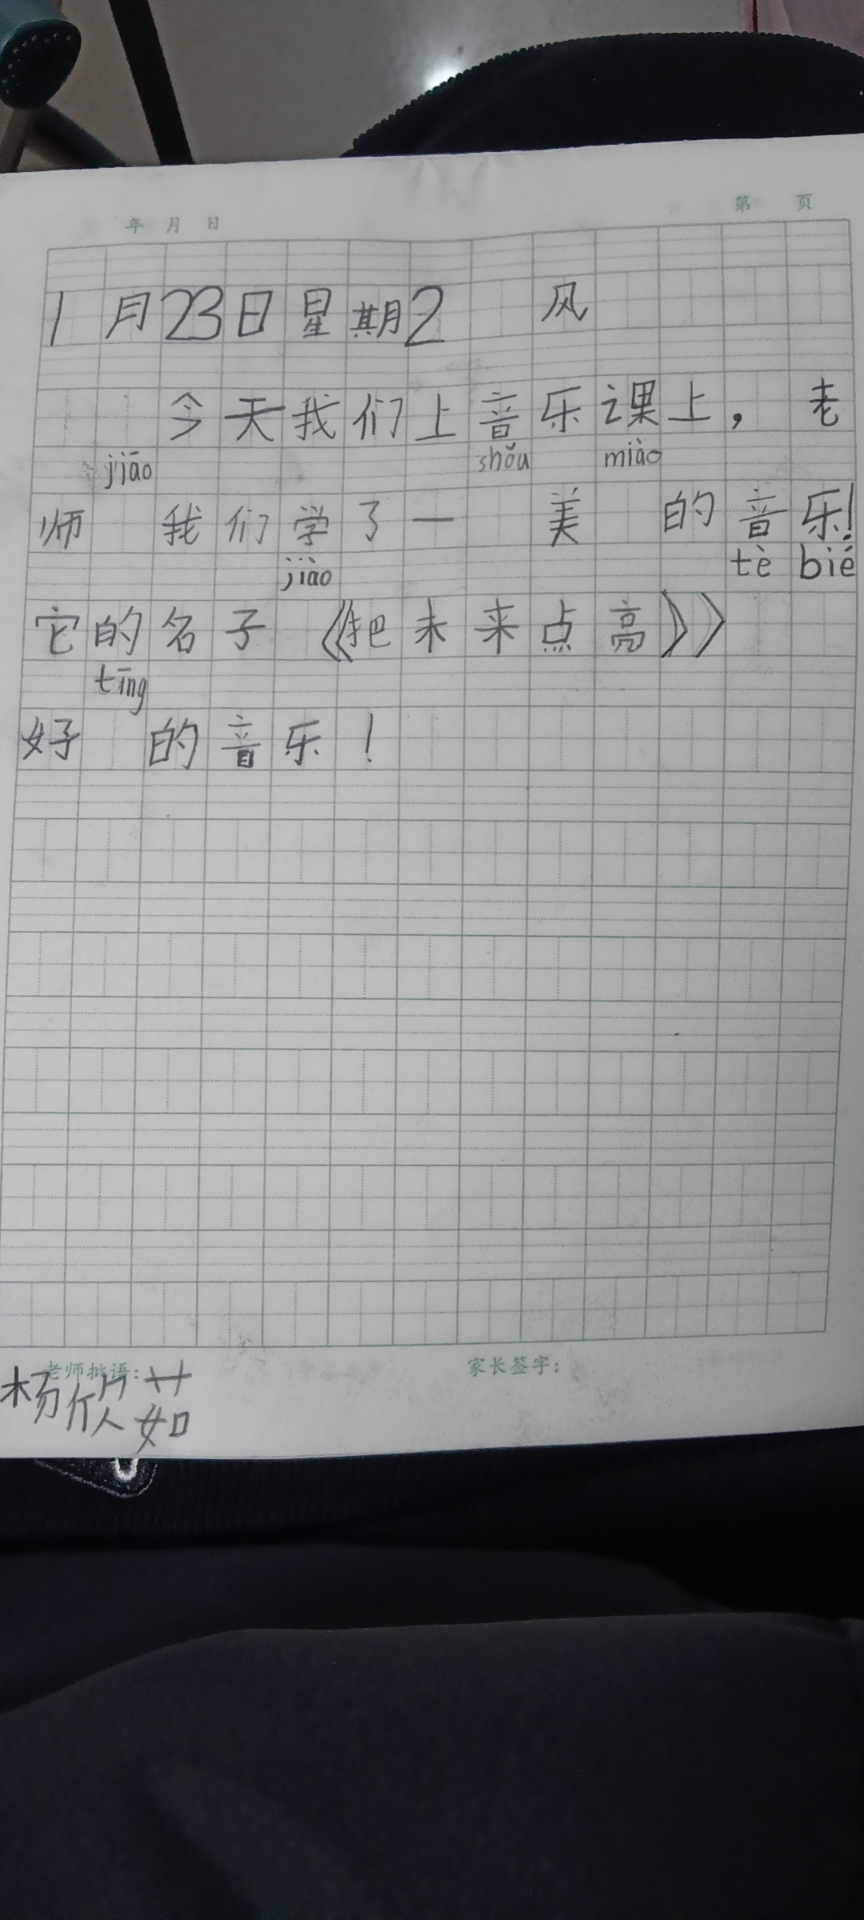 年 月 日 第 页
1月23日星期2 风
今天我们上音乐课上，老
jiāo shǒu miào
师 我们学了一 美 的音乐！
jiào tè bié
它的名子 《把未来点高》》
tīng
好 的音乐！
老师批语： 家长签字：
杨 茹